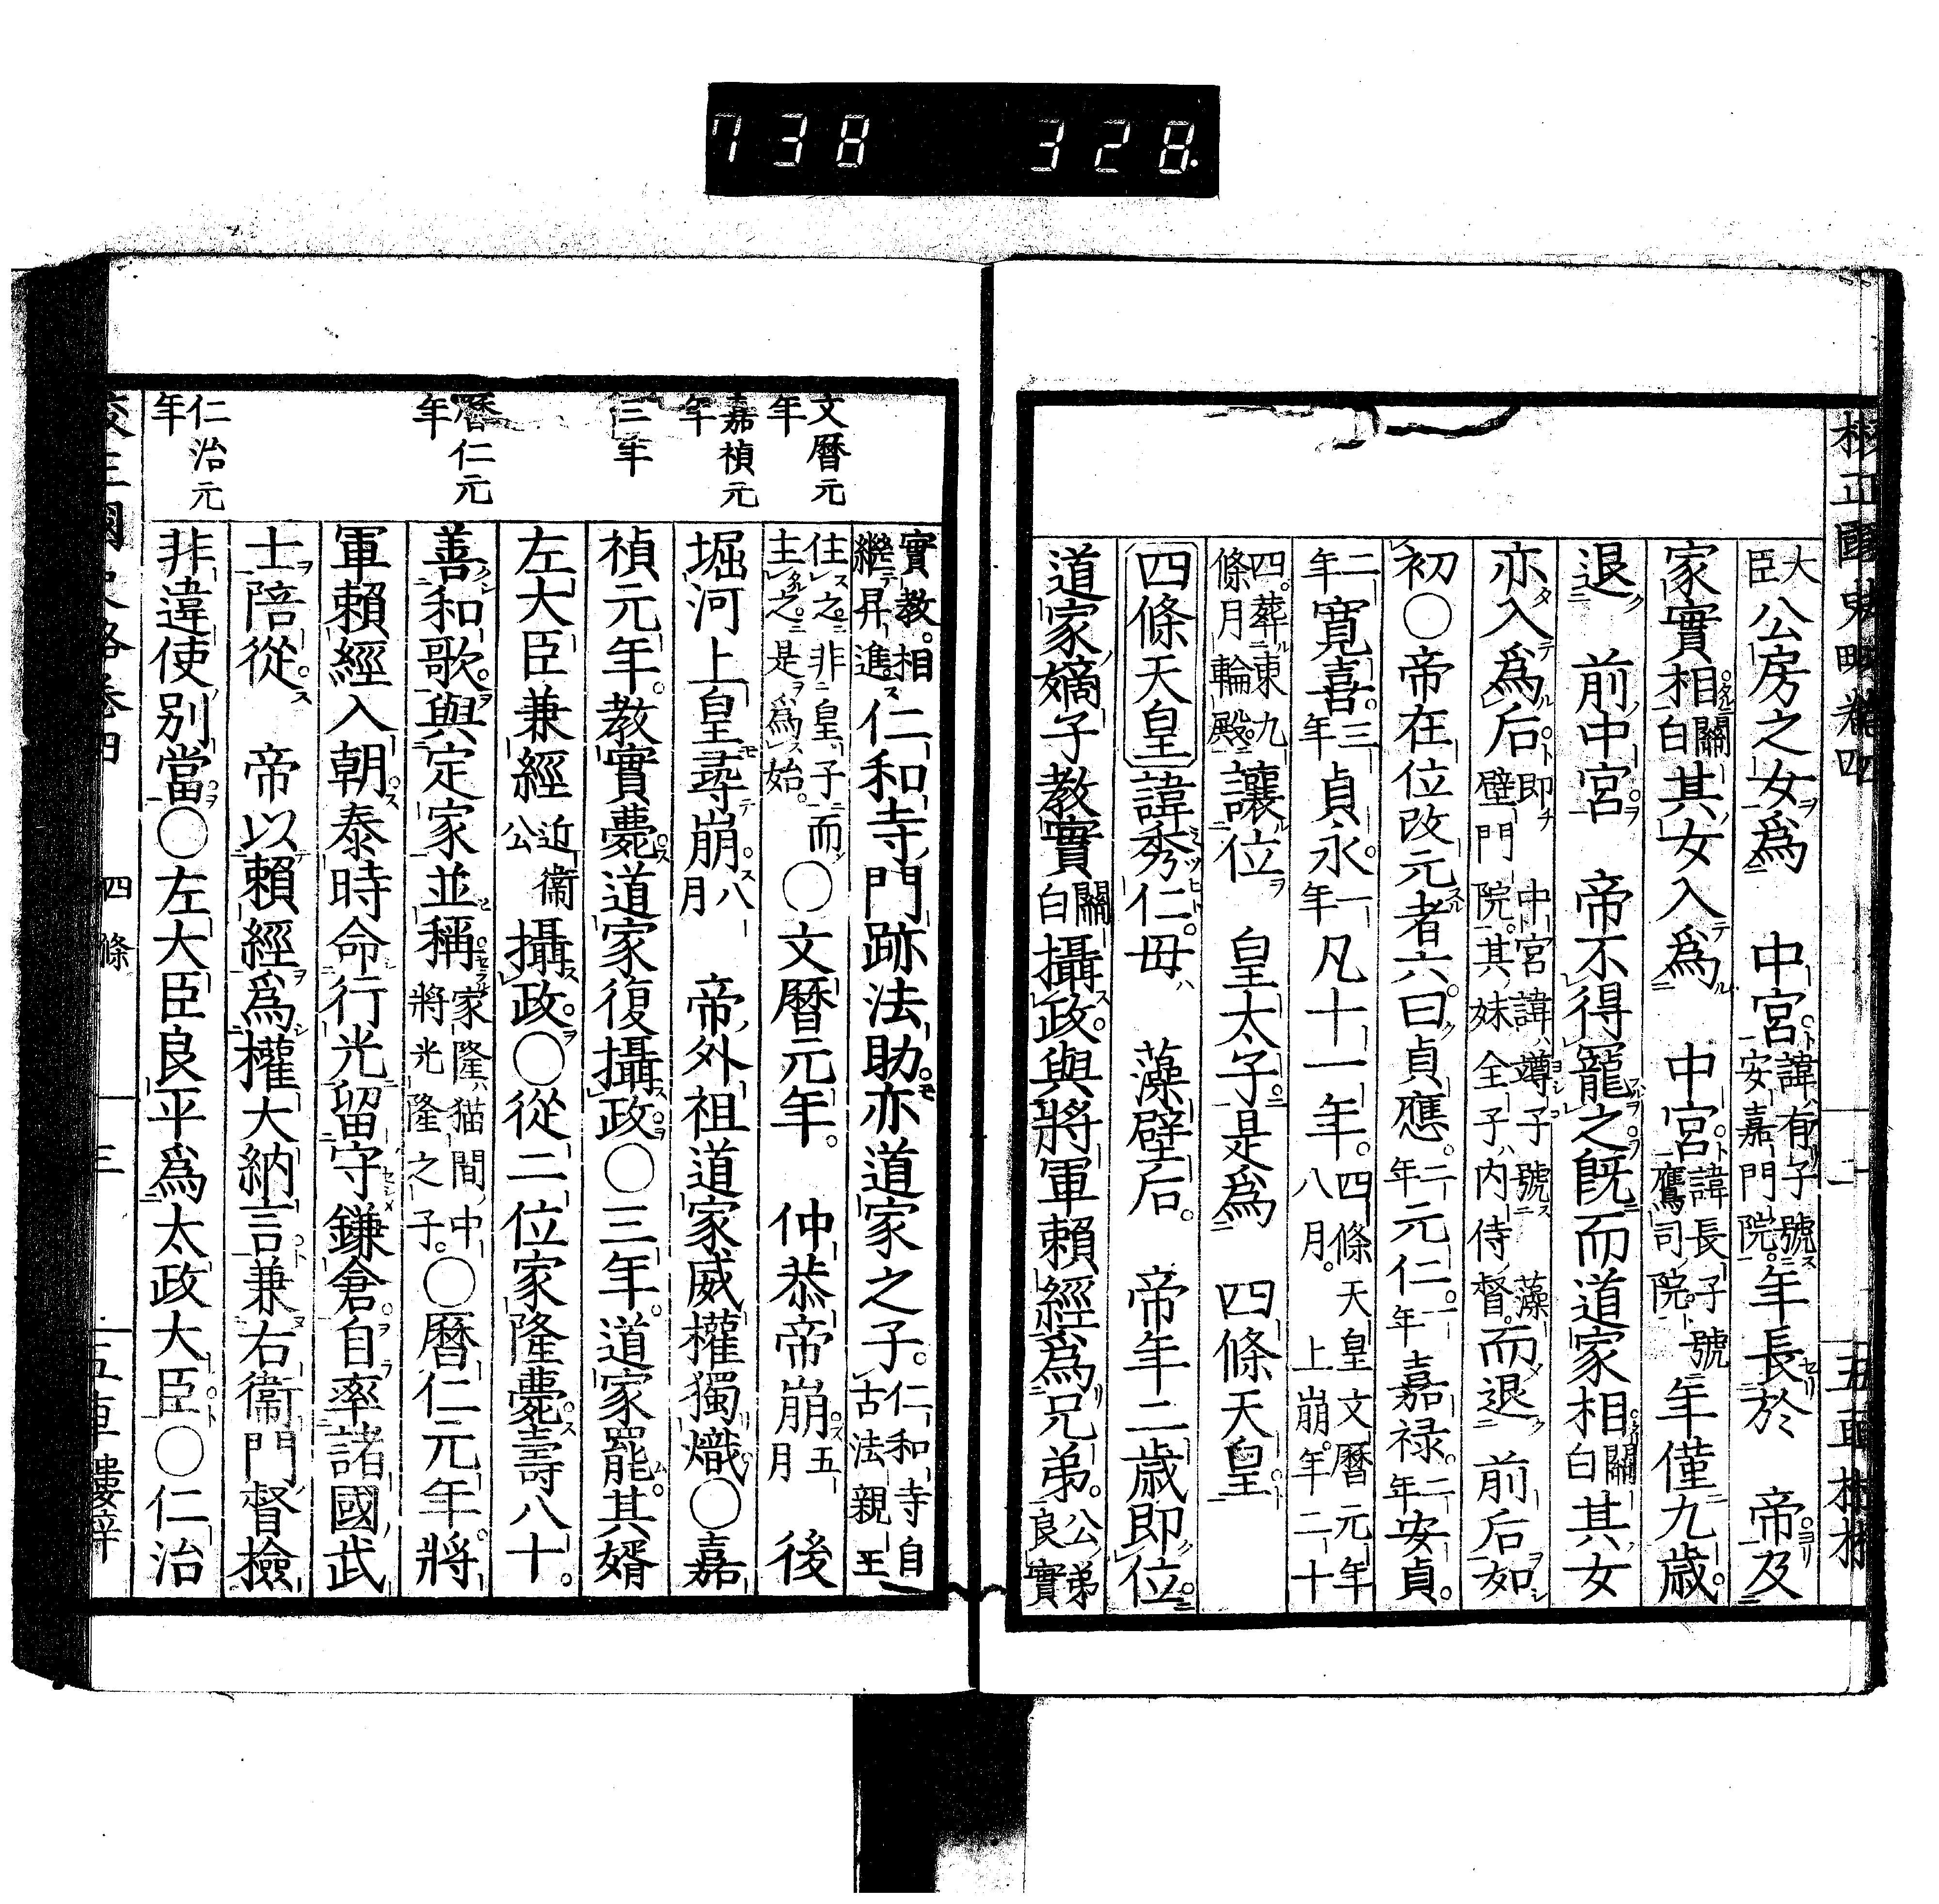 738 328
大臣公房之女爲 中宮諱有子號安嘉門院年長於 帝及
家實相關白其女入爲 中宮諱長子號鷹司院年僅九歳
退 前中宮 帝不得寵之既而道家相關白其女
亦入爲后即 中宮諱竴子號藻壁門院其妹全子内侍督而退 前后如
初〇帝在位改元者六曰貞應二年元仁一年嘉禄二年安貞
二年寛喜三年貞永一年凡十一年四條天皇文暦元年八月上崩年二十
四葬東九條月輪殿讓位 皇太子是爲 四條天皇
四條天皇諱秀仁母 藻壁后 帝年二歳即位
道家嫡子教實關白攝政與將軍頼經爲兄弟公弟良實
實教相繼昇進仁和寺門跡法助亦道家之子仁和寺自古法親王
住之非皇子而主之是爲始〇文暦元年 仲恭帝崩五月 後
堀河上皇尋崩八月 帝外祖道家威權獨熾〇嘉
禎元年教實薨道家復攝政〇三年道家罷其婿
左大臣兼經近衞公攝政〇從二位家隆薨壽八十
善和歌與定家並稱家隆猫間中將光隆之子〇暦仁元年將
軍頼經入朝泰時命行光留守鎌倉自率諸國武
士陪從 帝以頼經爲權大納言兼右衞門督檢
非違使別當〇左大臣良平爲太政大臣〇仁治
文暦元年
嘉禎元年
三年
暦仁元年
仁治元年
四條